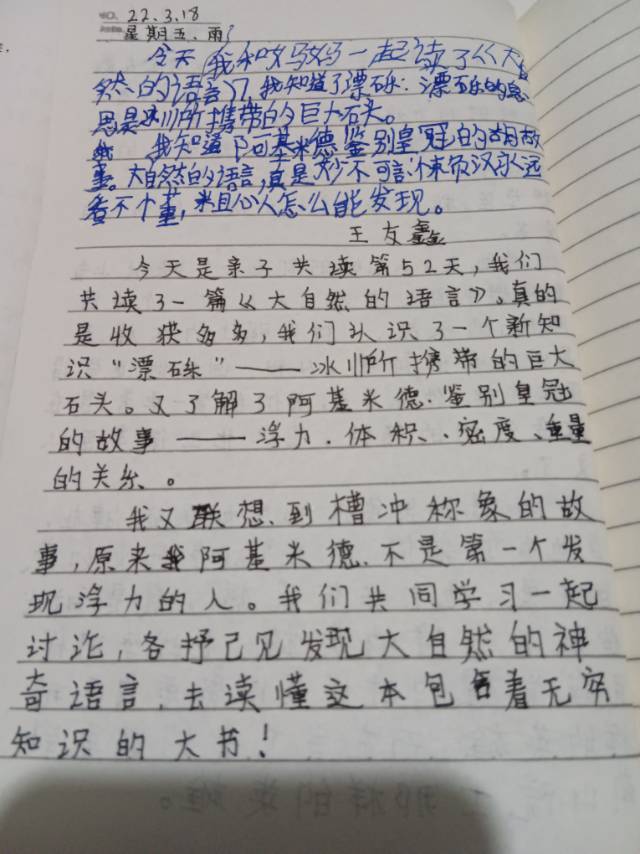 22.3.18
星期五.雨
今天我和妈妈一起读了《大自
然的语言》了,我知道了漂砾:漂砾的意
思是冰川所携带的巨大石头。
我知道阿基米德鉴别皇冠的故
事。大自然的语言,真是妙不可言:
看不个董,米且心人怎么能发现。
王友鑫
今天是亲子共读第52天,我们
共读了一篇《大自然的语言》。真的
是收获多多,我们认识了一个新知
识“漂砾”——冰川所携带的巨大
石头。又了解了阿基米德.鉴别皇冠
的故事——浮力.体积、密度、重量
的关系。
我又联想到槽冲称象的故
事,原来阿基米德.不是第一个发
现浮力的人。我们共同学习一起
讨论,各抒己见发现大自然的神
奇语言,去读懂这本包含着无穷
知识的大书!